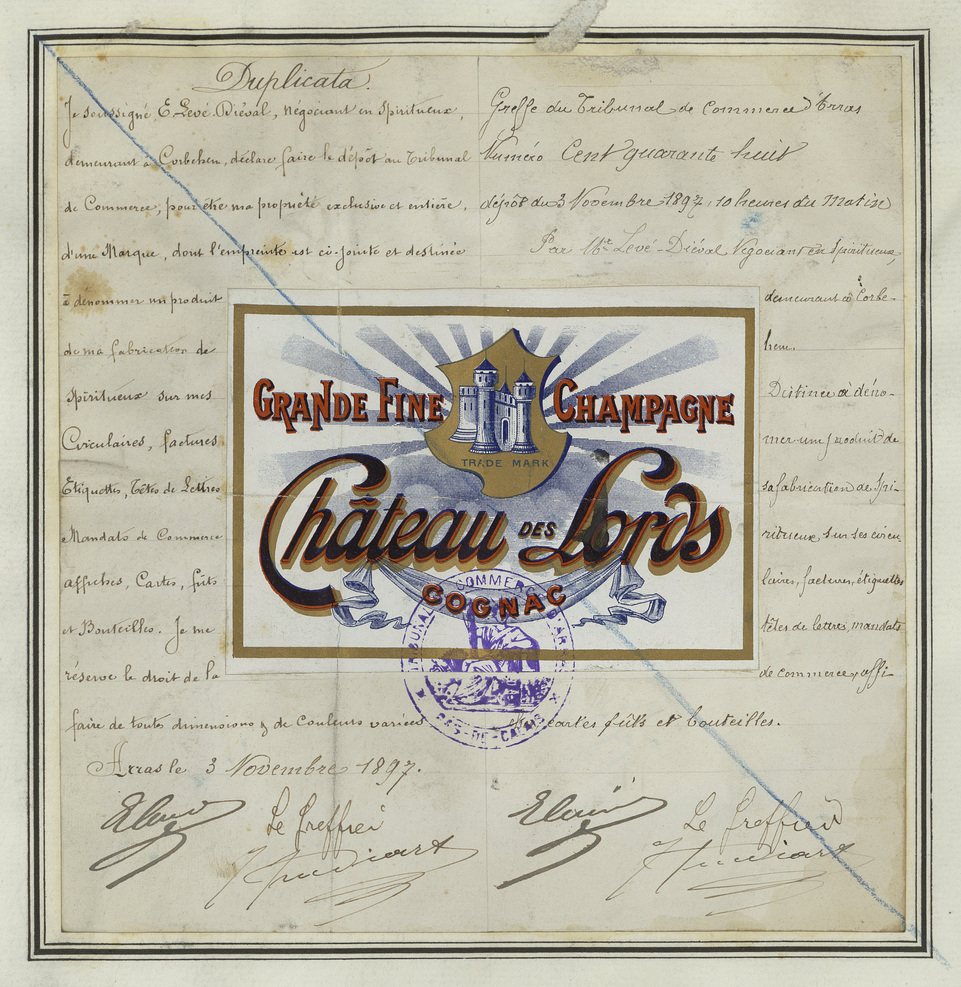 Duplicata.
Je soussigné, E. Levé-Diéval, négociant en Spiritueux,
demeurant à Corbehem, déclare faire le dépôt au Tribunal
de Commerce, pour être ma propriété exclusive et entière,
d'une Marque, dont l'empreinte est ci-jointe et destinée
à dénommer un produit
de ma fabrication de
Spiritueux sur mes
Circulaires, factures
Etiquettes, Têtes de Lettres
Mandats de Commerce
affiches, Cartes, fûts
et Bouteilles. Je me
réserve le droit de la
faire de toutes dimensions & de Couleurs variées
Arras le 3 Novembre 1897.
Le Greffier
Greffe du Tribunal de Commerce d'Arras
Numéro Cent quarante huit
dépôt du 3 Novembre 1897, 10 heures du Matin
Par Mr Levé-Diéval Négociant en Spiritueux,
demeurant à Corbe-
hem.
Distinée à déno-
mer un produit de
sa fabrication de Spi-
ritueux sur ses circu
laires, factures, étiquettes
têtes de lettres, mandats
de commerce, affi-
cartes fûts et bouteilles.
Le Greffier
GRANDE FINE CHAMPAGNE
TRADE MARK
Château DES Lords
COGNAC
TRIBUNAL DE COMMERCE D'ARRAS
PAS-DE-CALAIS